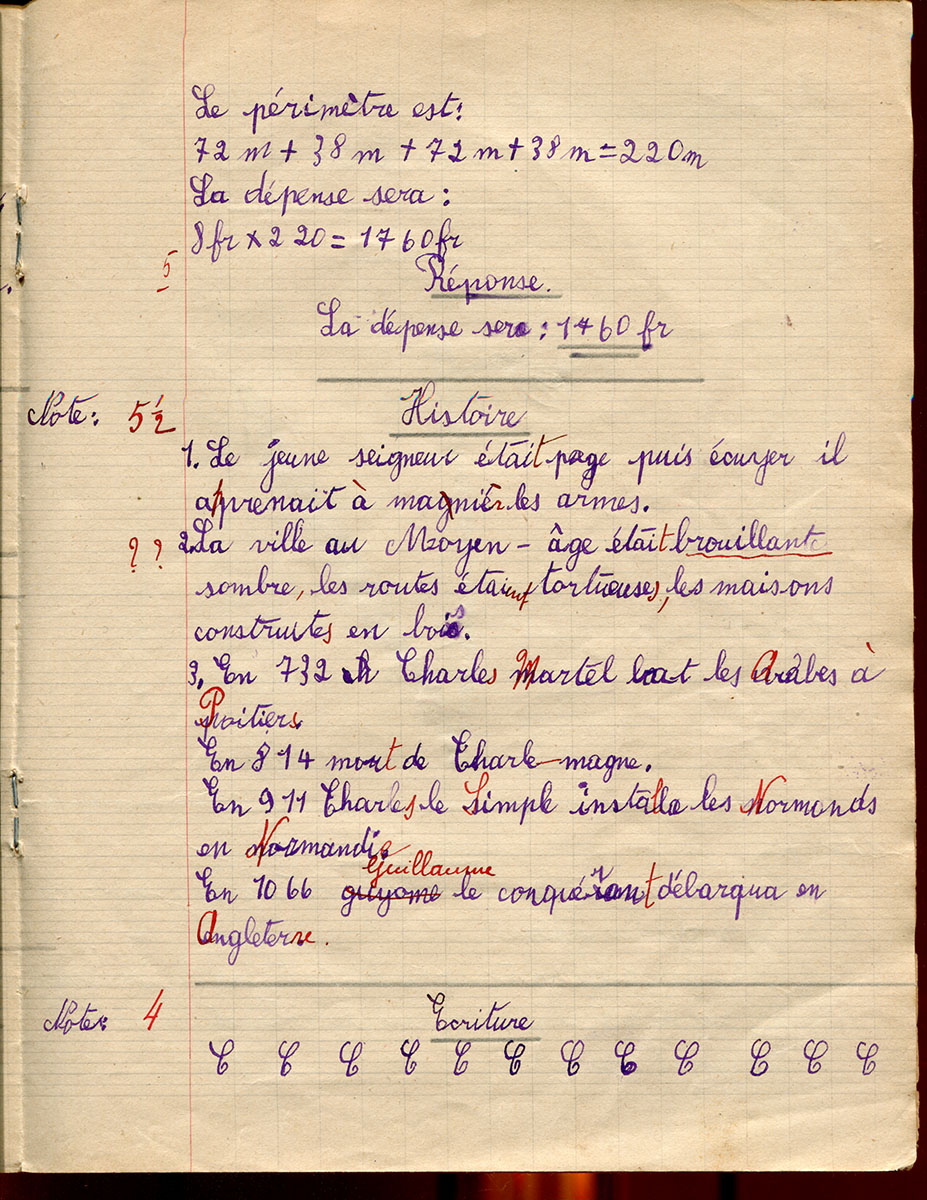 Le périmètre est:
72 m + 38 m + 72 m + 38 m = 220 m
La dépense sera :
8 fr × 220 = 1760 fr
5
Réponse.
La dépense sera : 1760 fr
Note: 5 ½ Histoire
1. Le jeune seigneur était page puis écuyer il
apprenait à magnier les armes.
? ? 2. La ville au Moyen-âge était brouillante
sombre, les routes étaient tortueuses, les maisons
construites en bois.
3. En 732 Charles Martel bat les Arabes à
Poitiers
En 814 mort de Charle-magne.
En 911 Charles le Simple installe les Normands
en Normandie
Guillaume
En 1066 guyome le conquérant débarqua en
Angleterre.
Note: 4 Ecriture
C C C C C C C C C C C C